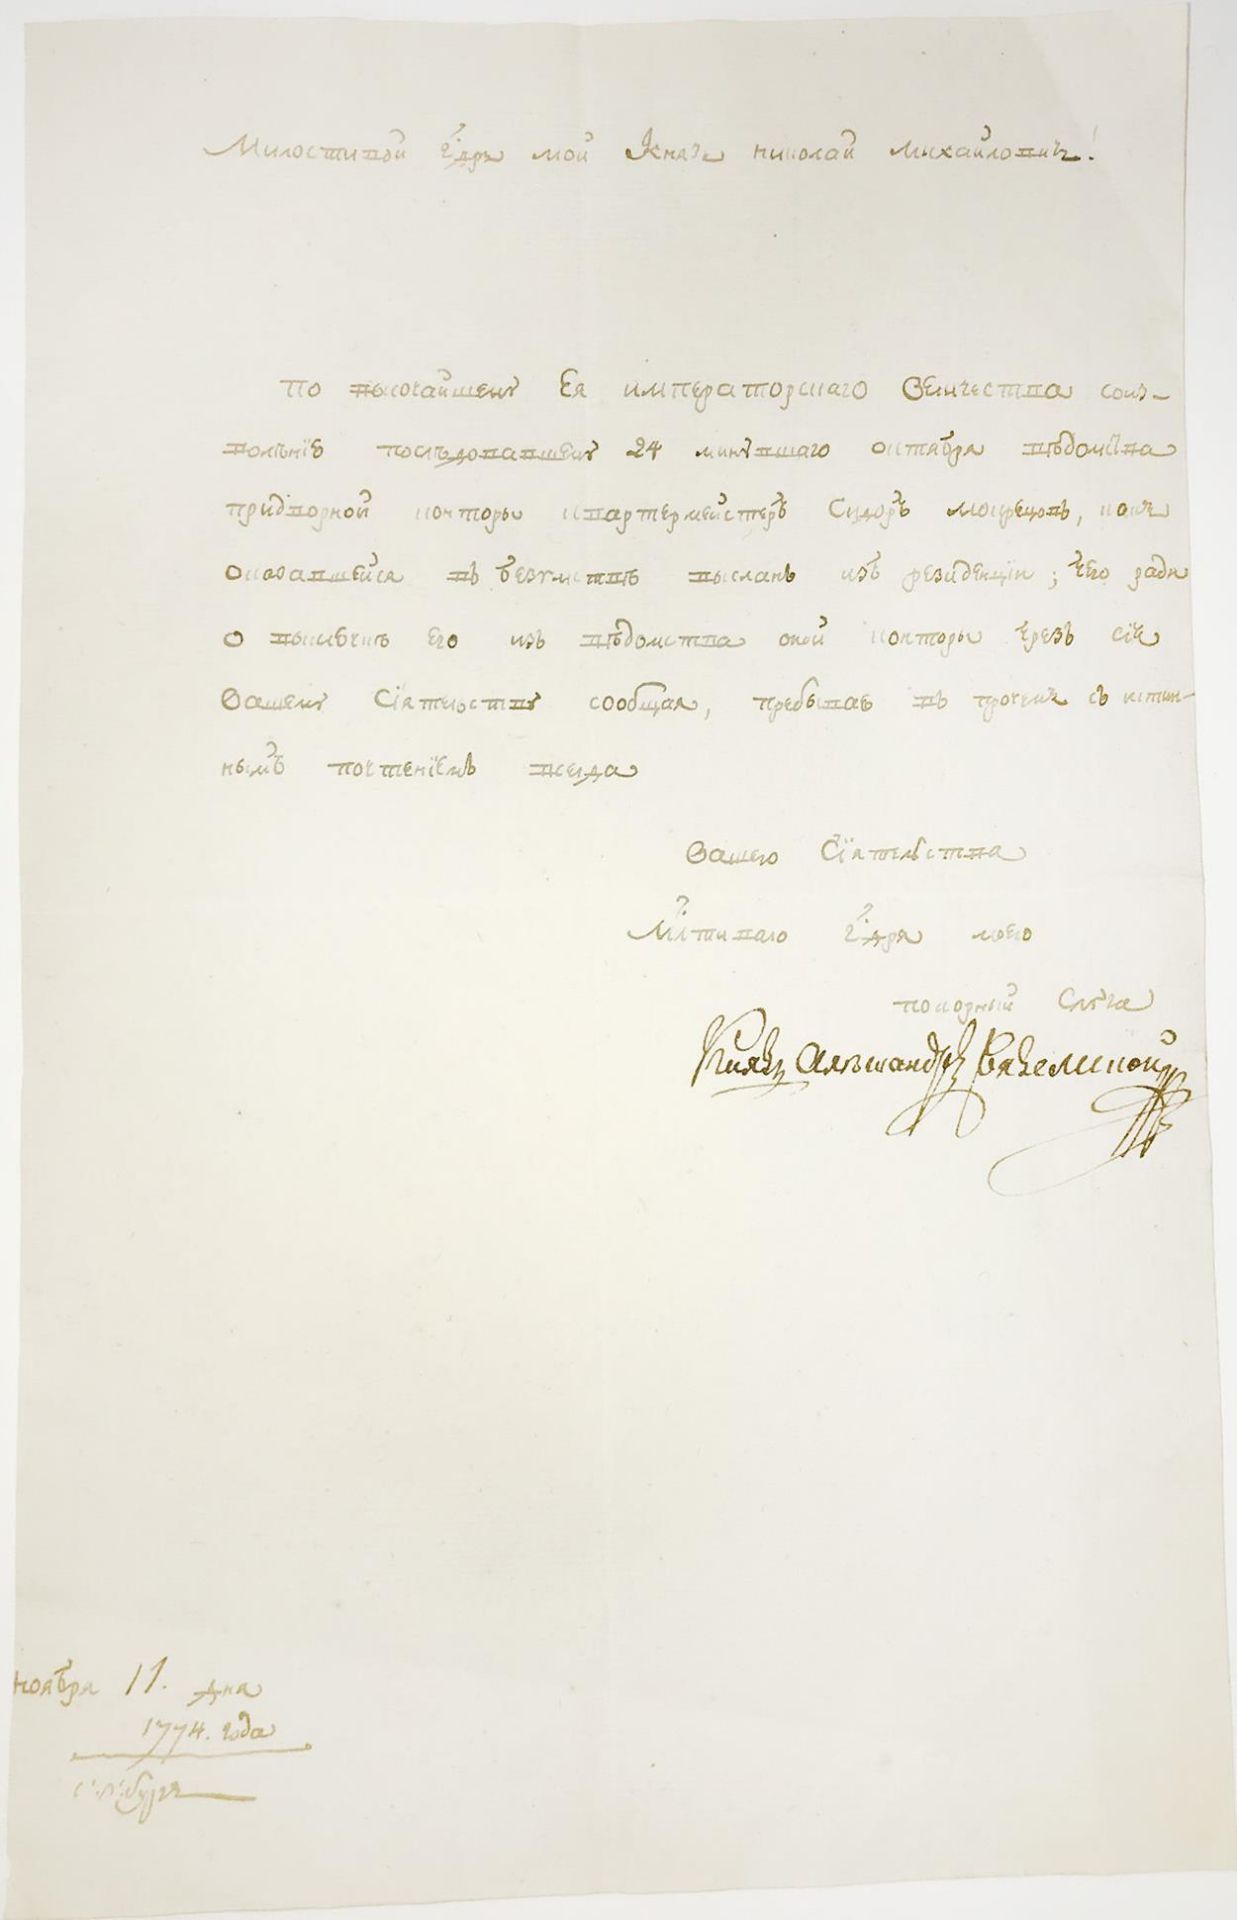 Милостивой Гдрь мой Князь Николай Михайловичь!
По высочайшему Ея императорскаго Величества соиз-
волѣнїю послѣдовавшему 24 минувшаго октября вѣдомства
придворной конторы квартермейстеръ Сидоръ, какъ
оказавшейся въ безумствѣ высланъ изъ резиденцїи; чего ради
о выключкѣ его изъ вѣдомства оной конторы чрезъ сїе
Вашему Сїятельству сообщая, пребываю въ протчемъ съ истин-
нымъ почтенїемъ всегда
Вашего Сїятельства
Млтиваго Гдря моего
покорный Слуга
Князь Александръ Вяземской
ноября 11. дня
1774. года